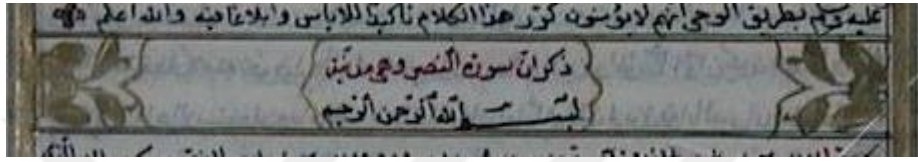 عليه وسلم بطريق الوحي انهم لا يؤمنون كرر هذا الكلام تاكيدا للاياس وابلاغا فيه والله اعلم
ذكران سورة النصر وهي مدنية
بسم الله الرحمن الرحيم